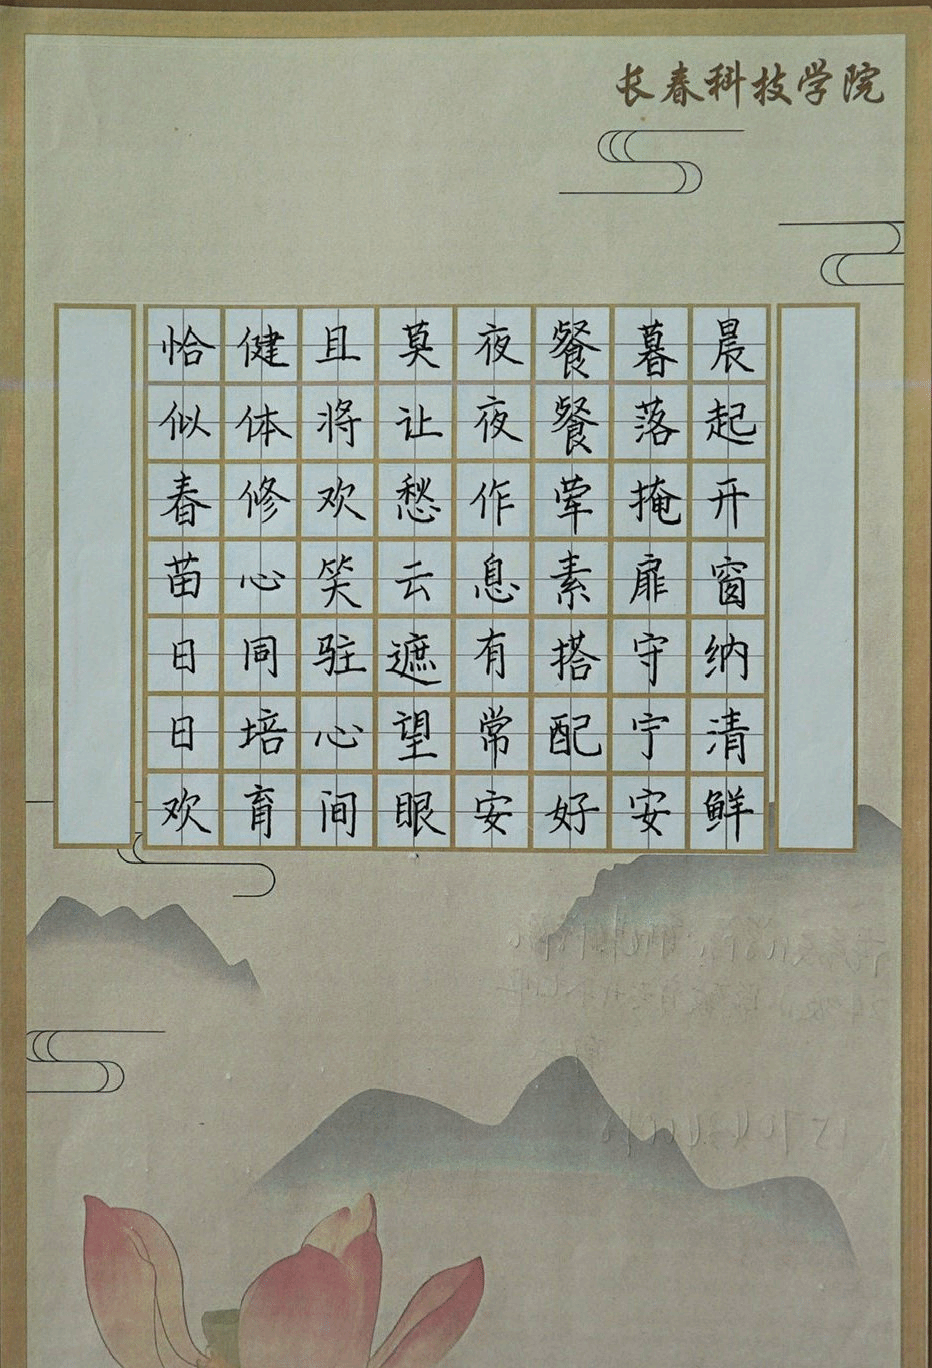 长春科技学院
晨起开窗纳清鲜
暮落掩扉守宁安
餐餐荤素搭配好
夜夜作息有常安
莫让愁云遮望眼
且将欢笑驻心间
健体修心同培育
恰似春苗日日欢